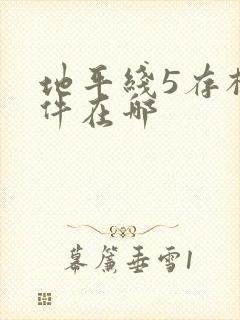 地平线5存档
件在哪
幕篱垂雪1